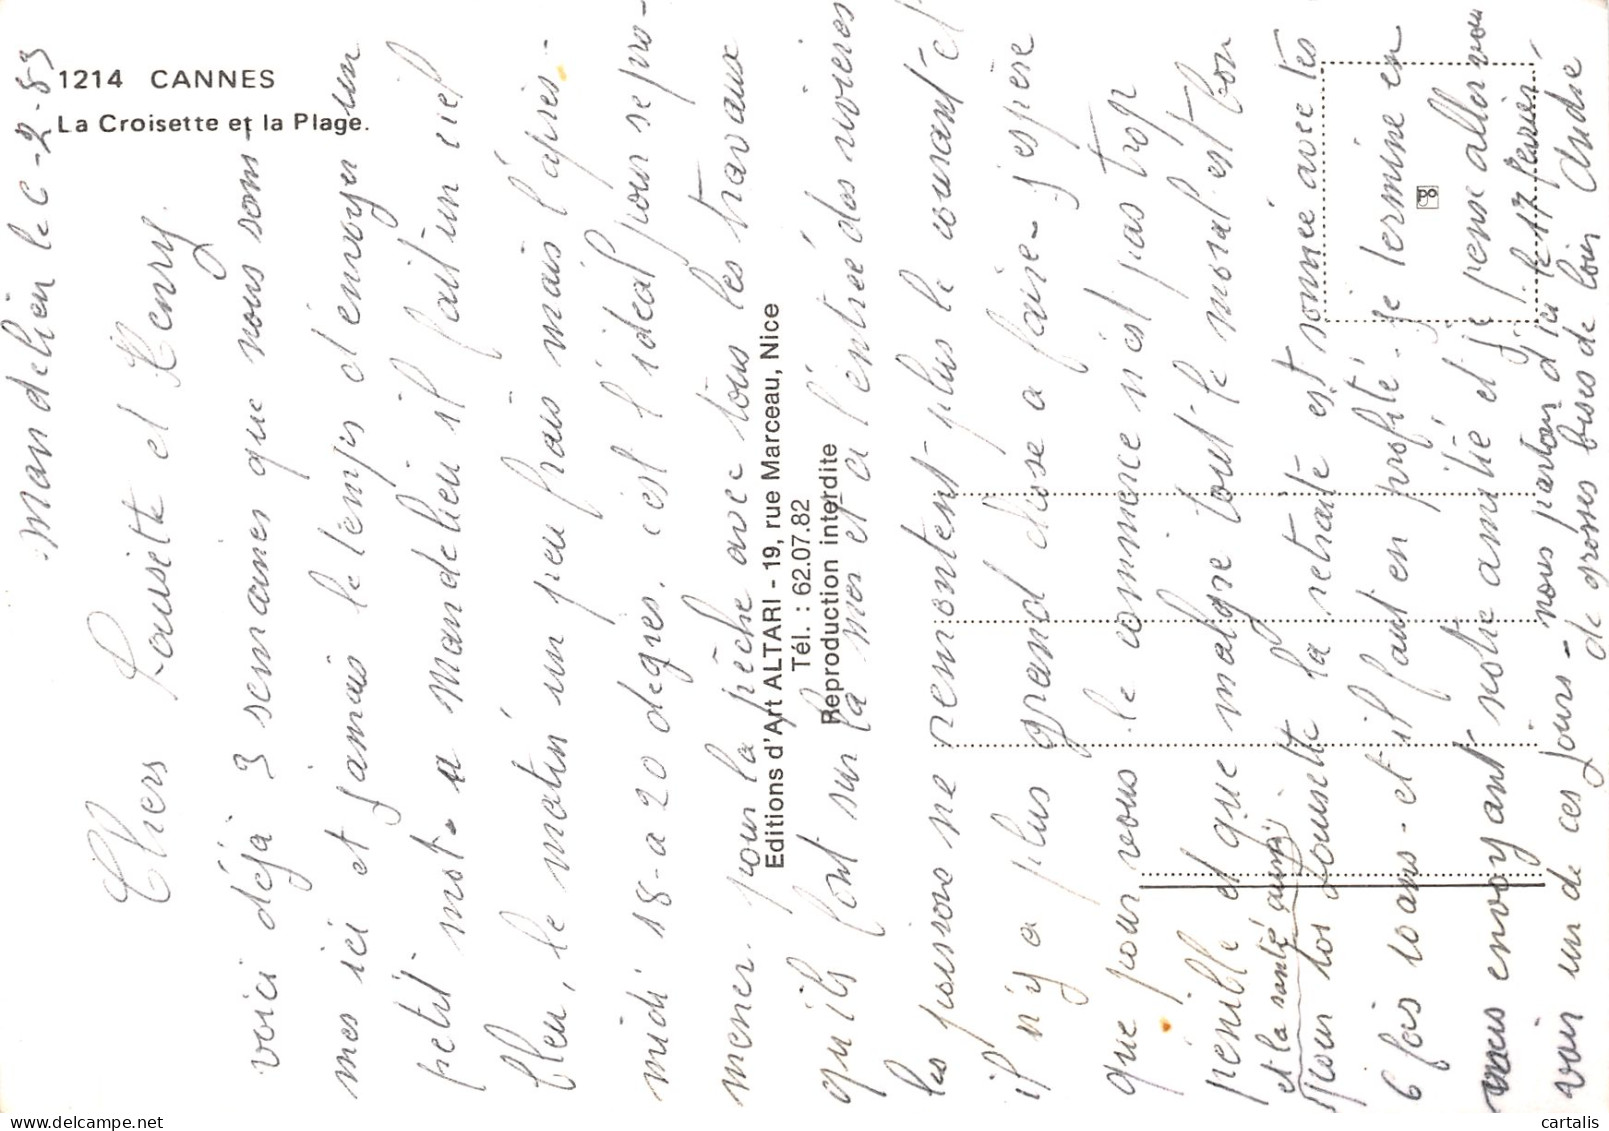 1214 CANNES
La Croisette et la Plage.
Mandelieu le 6-2-83
Chers Lousette et Henry.
voici déjà 3 semaines que nous som-
mes ici et jamais le temps d'envoyer un
petit mot. a Mandelieu il fait un ciel
bleu, le matin un peu frais mais l'après-
midi 18-a 20 degrés. c'est l'idéal pour se pro-
mener. pour la pêche avec tous les travaux
qu'ils font sur la mer et a l'entrée des rivières
les poissons ne remontent plus le courant et
il n'y a plus grand chose a faire - j'espère
que pour vous le commerce n'est pas trop
pénible et que malgré tout le moral est bon
et la santé aussi
pour toi Lousette la retraite est sonnée avec tes
6 fois 10 ans - et il faut en profité. je termine en
vous envoyant notre amitié et je pense aller vous
voir un de ces jours - nous partons d'ici le 17 février
de grosses bises de loin André
Editions d'Art ALTARI - 19, rue Marceau, Nice
Tél. : 62.07.82
Reproduction interdite
cartalis